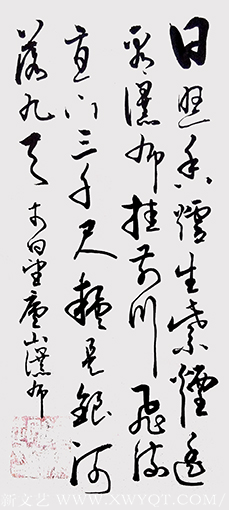 日照香爐生紫煙遙
看瀑布挂前川飛流
直下三千尺疑是銀河
落九天 李白望廬山瀑布
新文艺 WWW.XWYQT.COM/